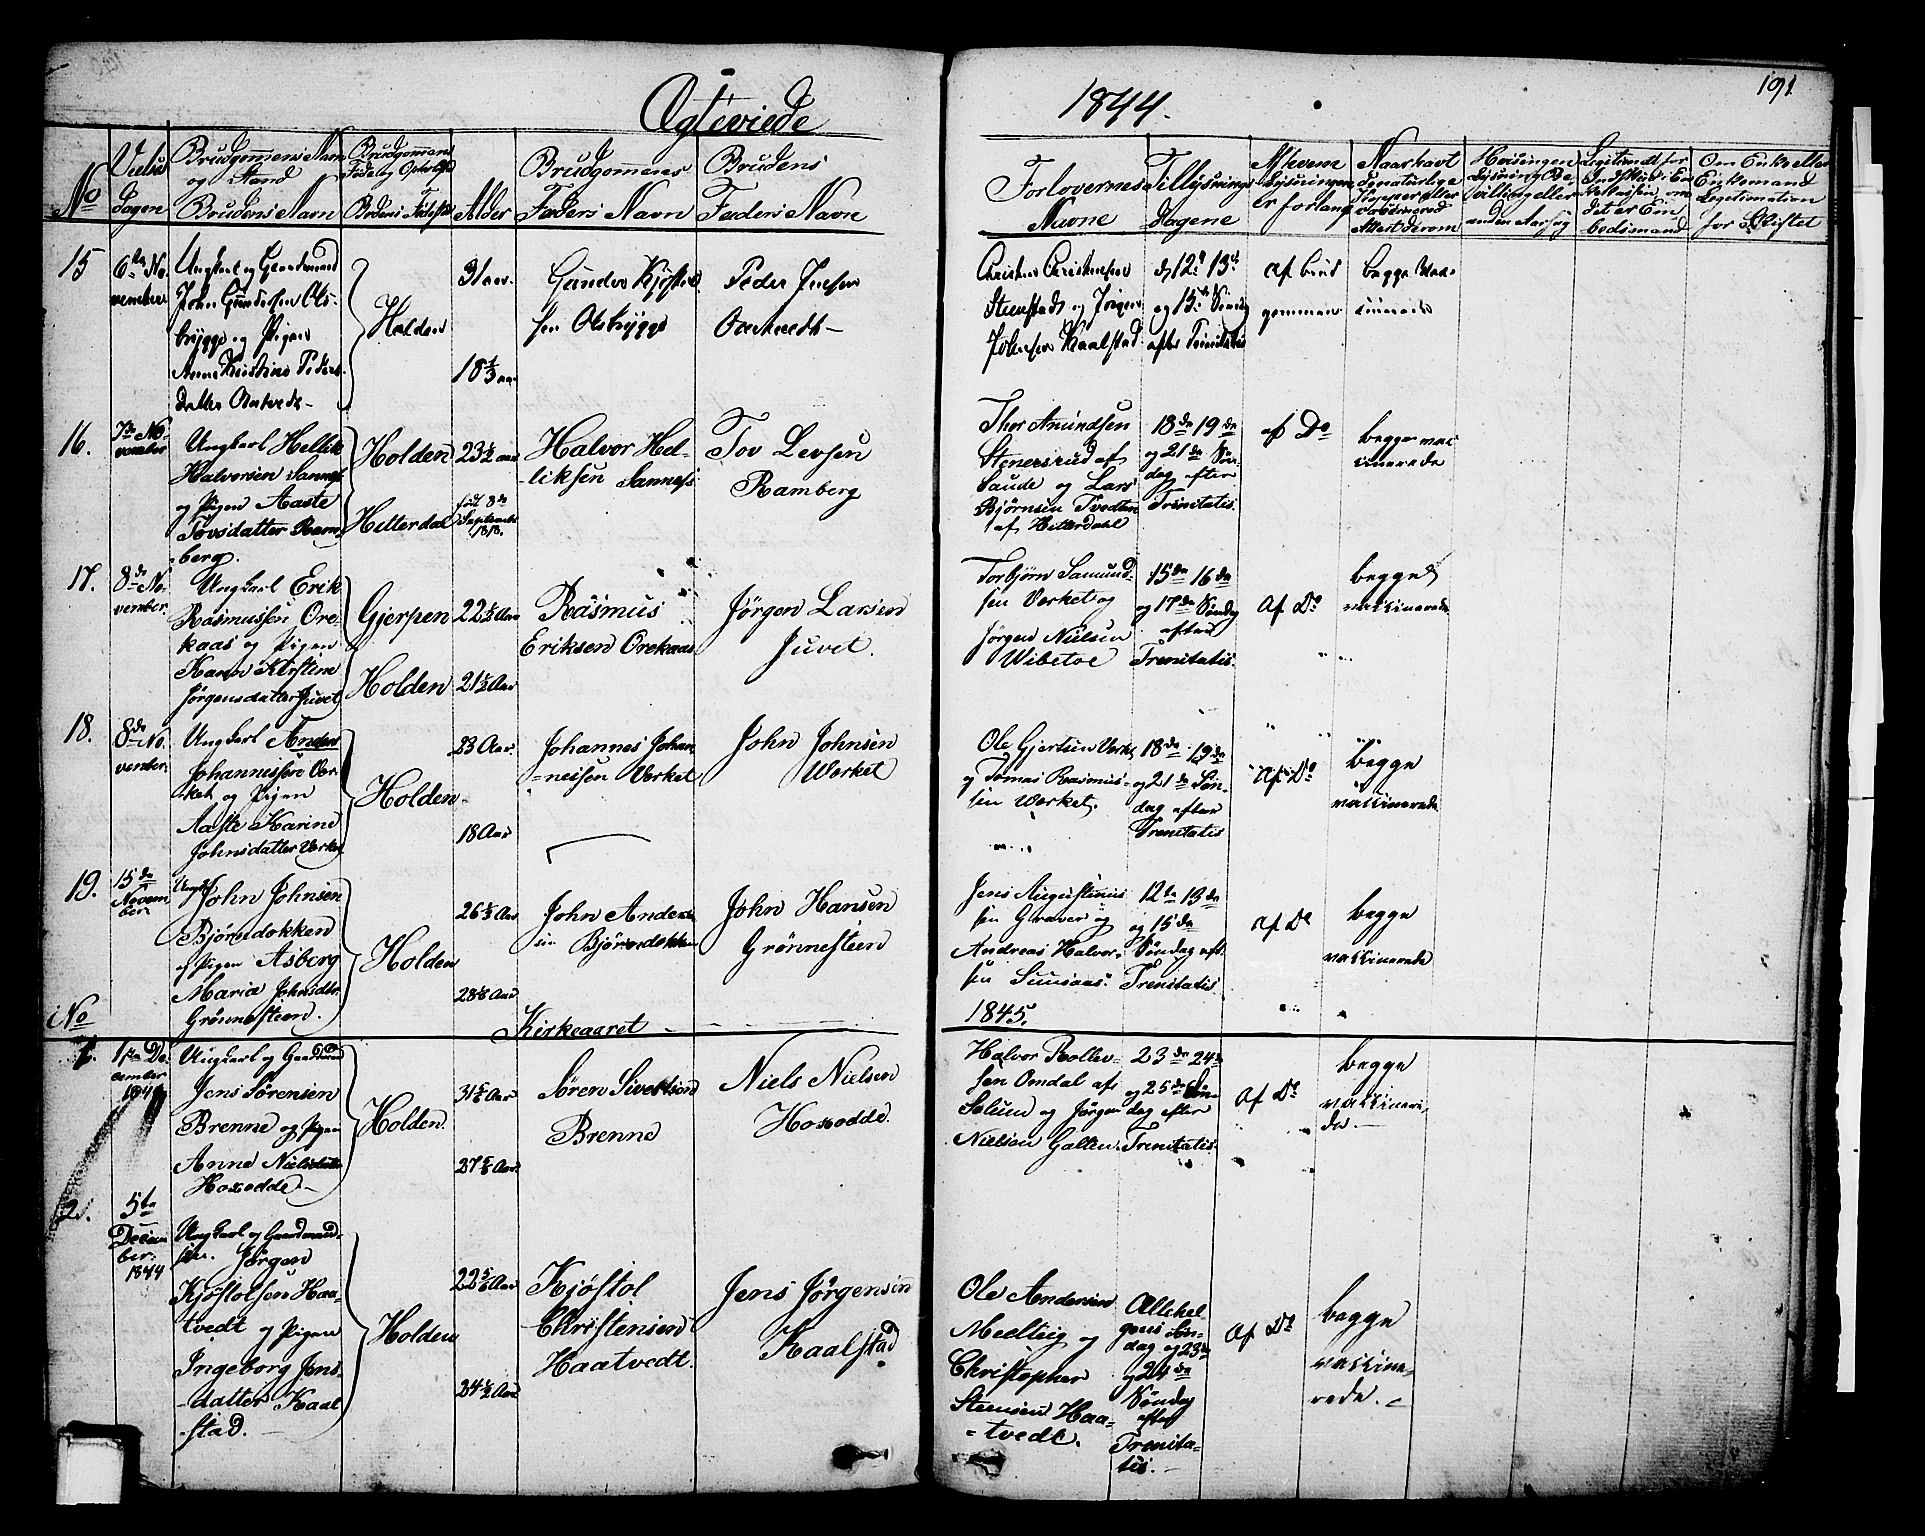 Ægteviede
1844.
191
No
Vielses
Dagen
Brudgommens Navn
og Stand
Brudens Navn
Brudgommens
Fødested
Brudens Fødested
Alder
Brudgommens
Faders Navn
Brudens
Faders Navn
Forlovernes
Navne
Tillysnings
Dagene
Af hvem
Lysningen
er forlangt
Naar havt
de naturlige
Kopper eller
vaccinered
Attest derom
15
6te No-
vember
Ungkarl og Gaardmand
John Gundersen Ols-
brygge og Pigen
Anne Kirstine Peders-
datter Overtvedt
Holden
31 aar.
18 aar
Gunder Kjøstol-
sen Olsbrygge
Peder Jensen
Overtvedt
Christen Christensen
Stenstad og Jørgen
Johnsen Kaalstad
12te 13de
og 15de Søndag
efter Trinitatis
af Brud
gommen
begge vac-
sinerede
16.
7de No-
vember
Ungkarl Hellik
Halvorsen Sannes
og Pigen Aaste
Tovsdatter Ram-
berg.
Holden
Hitterdal
23½ aar
født 8de
September
1818.
Halvor Hel-
liksen Sannes
Tov Levsen
Ramberg
Thor Amundsen
Stenersrud af
Saude og Lars
Bjørnsen Tvedten
af Hitterdahl
18de 19de
og 21de Søn-
dag efter
Trenitatis.
af Do
begge vac
sinerede
17.
8de No-
vember.
Ungkarl Erik
Rasmussen Ore-
kaas og Pigen
Karen Kirstine
Jørgensdatter Juvet
Gjerpen
Holden
22½ Aar
21½ Aar
Rasmus
Eriksen Orekaas
Jørgen Larsen
Juvet.
Torbjørn Samund-
sen Verket og
Jørgen Nielsen
Wibetoe
15de 16de
og 17de Søndag
efter
Trenitatis.
Af Do
begge
vaksinerede
18.
8de No-
vember.
Ungkarl Anders
Johannessen Ver-
ket og Pigen
Aaste Karine
Johnsdatter Verket
Holden
23 Aar.
18 Aar
Johannes Johan-
-nesen Verket
John Johnsen
Werket
Ole Gjertsen Verket
og Tomas Rasmus-
sen Verket.
18de 19de
og 21de Søn-
dag efter
Trenitatis
Af Do
begge
vaksinerede
19.
15de
Novem-
ber
Ungk. John Johnsen
Bjørndokken
og Pigen Asberg
Maria Johnsdtr.
Grønnesteen.
Holden
26 Aar
28 Aar
John Ander-
sen Bjørndokken
John Hansen
Grönnesteen
Jens Augustinus
sen Graver og
Andreas Halvor-
sen
12te 13de
og 15de
Søndag eft.
Trenitatis
af Do
begge
vaksinerede
No
Kirkeaaret
1845.
1.
1ste De-
cember
1844
Ungkarl og Gaardmand
Jens Sørensen
Brenne og Pigen
Anne Nielsdatter
Hoxodde
Holden.
31 Aar
27 Aar
Søren Sivertsen
Brenne
Niels Nielsen
Hoxodde.
Halvor Rollev-
sen Omdal af
Solum og Jørgen
Nielsen Galten.
23de 24de
og 25de Søn-
dag efter
Trenitatis.
Af Do
begge
vaksinere-
de.
2.
5te
Decem-
ber.
1844
Ungkarl og Gaardmand-
søn. Jørgen
Kjøstolsen Haa-
tvedt og Pigen
Ingeborg Jens-
-datter Kaal
-stad.
Holden
22 Aar
24½ Aar
Kjøstol
Christensen
Haatvedt.
Jens Jørgensen
Kaalstad
Ole Andersen
Melteig og
Christopher
Steensen Haa-
-tvedt.
Allehel-
gens Søn-
dag og 23de
og 24de
Søndag
efter
Trenita-
tis.
Af Do
begge
vaksine-
rede.